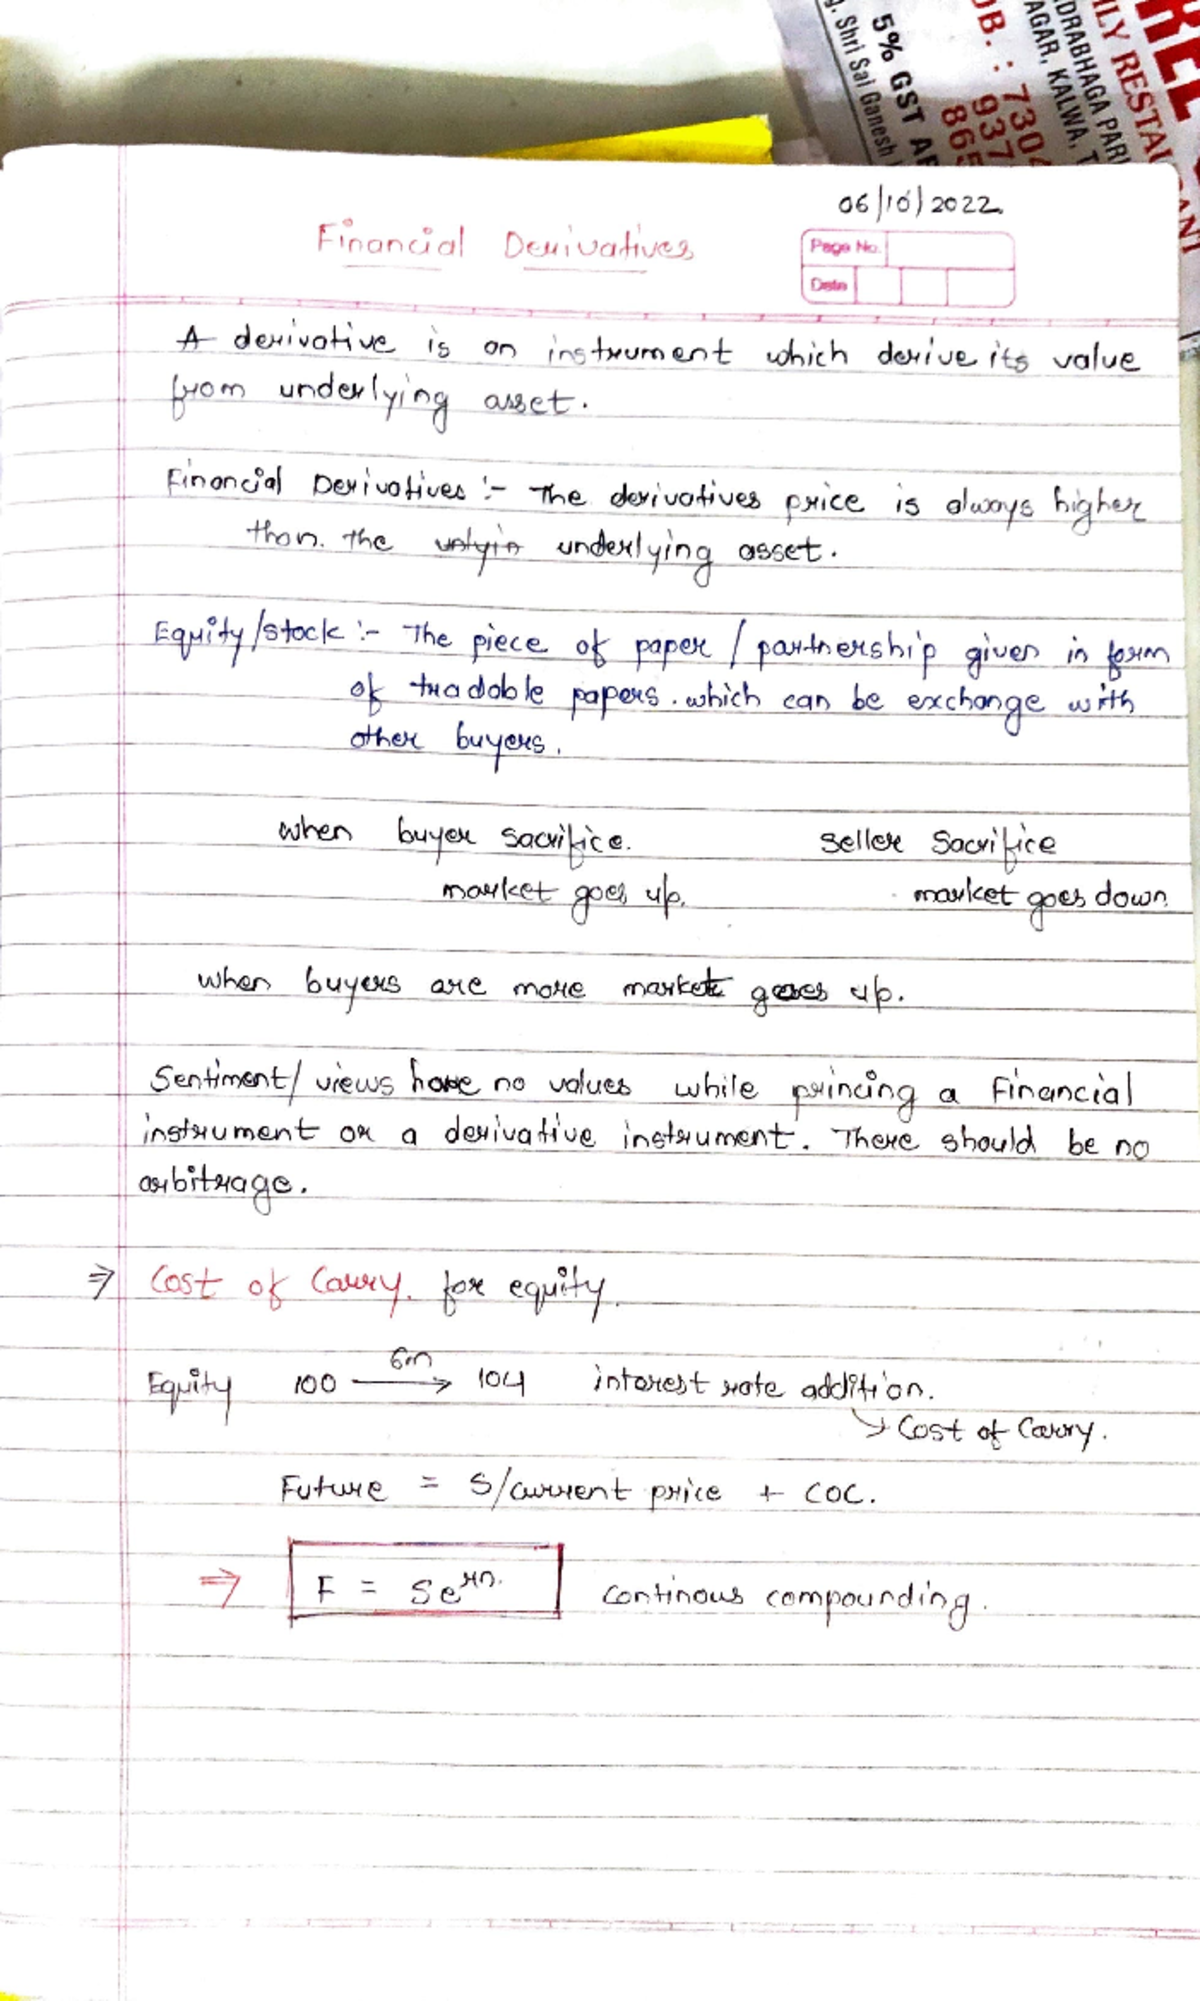 REE
ILY RESTAURANT
DRABHAGA PAR
AGAR, KALWA, T
OB. : 7304
937
865
5% GST A
g. Shri Sai Ganesh
06/10/2022.
Financial Derivatives
Page No.
Date
A derivative is an instrument which derive its value
from underlying asset.
Financial Derivatives :- The derivatives price is always higher
than. the unlyin underlying asset.
Equity/stock :- The piece of paper / partnership given in form
of tradable papers. which can be exchange with
other buyers.
when buyer sacrifice. seller Sacrifice
market goes up. market goes down.
when buyers are more market goes up.
Sentiment/ views have no values while princing a Financial
instrument or a derivative instrument. There should be no
arbitrage.
⇒ Cost of Carry. for equity.
6m
Equity 100 → 104 interest rate addition.
↳ Cost of Carry.
Future = S/current price + COC.
⇒ F = Se^rn. continous compounding.